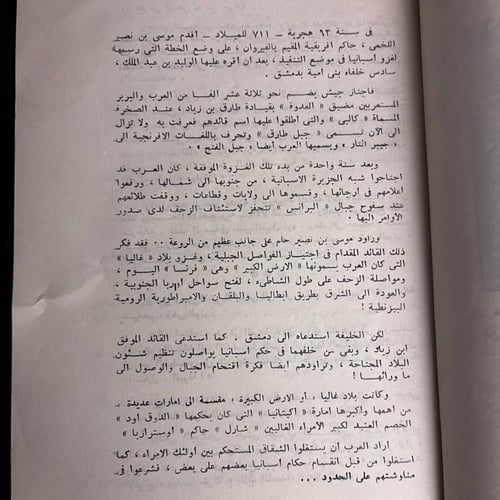 فى سنة ٩٣ هجرية ــ ٧١١ للميلاد ــ اقدم موسى بن نصير
اللخمى ، حاكم افريقية المقيم بالقيروان ، على وضع الخطة التى رسمها
لغزو اسبانيا فى موضع التنفيذ ، بعد ان اقره عليها الوليد بن عبد الملك ،
سادس خلفاء بنى امية بدمشق .
فاجتاز جيش يضم نحو ثلاثة عشر الفا من العرب والبربر
المستعربين مضيق « العدوة » بقيادة طارق بن زياد ، عند الصخرة
المسماة « كالبى » والتى اطلقوا عليها اسم قائدهم فعرفت به ولا تزال
الى الآن تسمى « جبل طارق » وتحرف باللغات الافرنجية الى
« جيبر التار » ويسميها العرب ايضا « جبل الفتح » .
وبعد سنة واحدة من بدء تلك الغزوة الموفقة ، كان العرب قد
اجتاحوا شبه الجزيرة الاسبانية ، من جنوبها الى شمالها ، ورفعوا
اعلامهم فى ارجائها ، وقسموها الى ولايات وقطاعات ، ووقفت طلائعهم
عند سفوح جبال « البرانس » تتحفز لاستئناف الزحف لدى صدور
الاوامر اليها .
وراود موسى بن نصير حلم على جانب عظيم من الروعة .. فقد فكر
ذلك القائد المقدام فى اجتياز الفواصل الجبلية ، وغزو بلاد « غاليا »
التى كان العرب يسمونها « الارض الكبير » وهى « فرنسا » اليوم ،
ومواصلة الزحف على طول الشاطىء ، لفتح سواحل اوربا الجنوبية ،
والعودة الى الشرق بطريق ايطاليا والبلقان والامبراطورية الرومية
البيزنطية !
لكن الخليفة استدعاه الى دمشق . كما استدعى القائد الموفق
ابن زياد ، وبقى من خلفهما فى حكم اسبانيا يواصلون تنظيم شئون
البلاد المجتاحة ، وتراودهم ايضا فكرة اقتحام الجبال والوصول الى
ما ورائها !
وكانت بلاد غاليا ، أو الارض الكبيرة ، مقسمة الى امارات عديدة ،
من أهمها واكبرها امارة « اكيتانيا » التى كان يحكمها « الدوق اود »
الخصم العنيد لكبير الامراء الغاليين « شارل » حاكم « اوسترازيا »
اراد العرب ان يستغلوا الشقاق المستحكم بين اولئك الامراء ، كما
استغلوا من قبل انقسام حكام اسبانيا بعضهم على بعض ، فشرعوا فى
مناوشتهم على الحدود ...